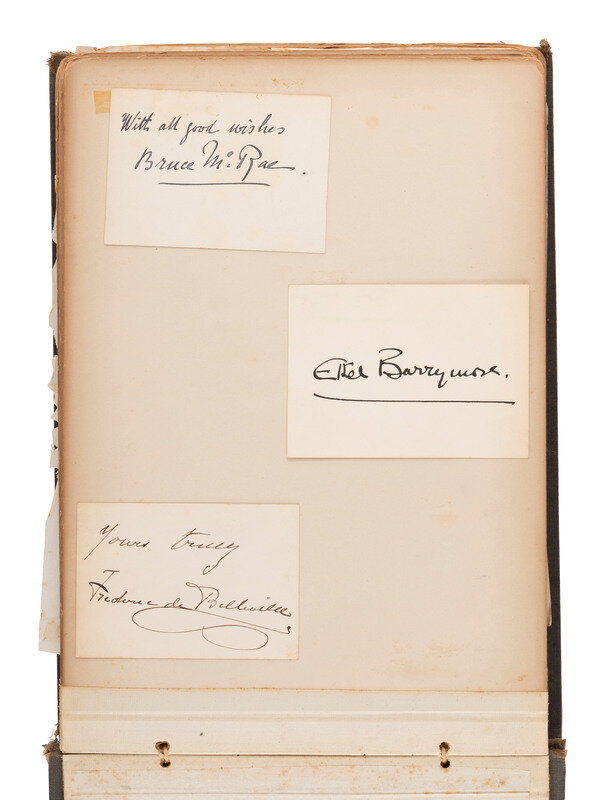 With all good wishes
Bruce McRae.
Ethel Barrymore.
Yours truly
Frederic de Belleville